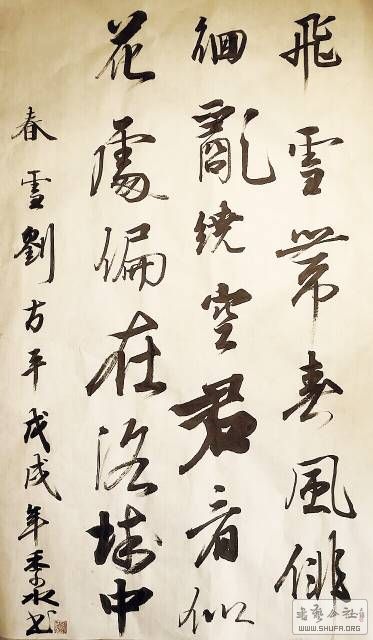 飛雪帶春風俳
徊亂繞空君看似
花處偏在洛城中
春雪劉方平戊戌年季水书
书艺公社
WWW.SHUFA.ORG